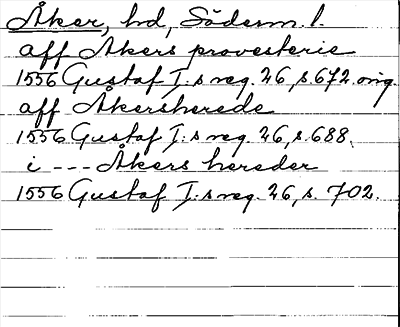 Åker, hd, Söderm. l.
aff Åkers provesterie
1556 Gustaf I:s reg. 26, s. 672. orig.
aff Åkersherede
1556 Gustaf I:s reg. 26, s. 688.
i --- Åkers hereder
1556 Gustaf I:s reg. 26, s. 702.